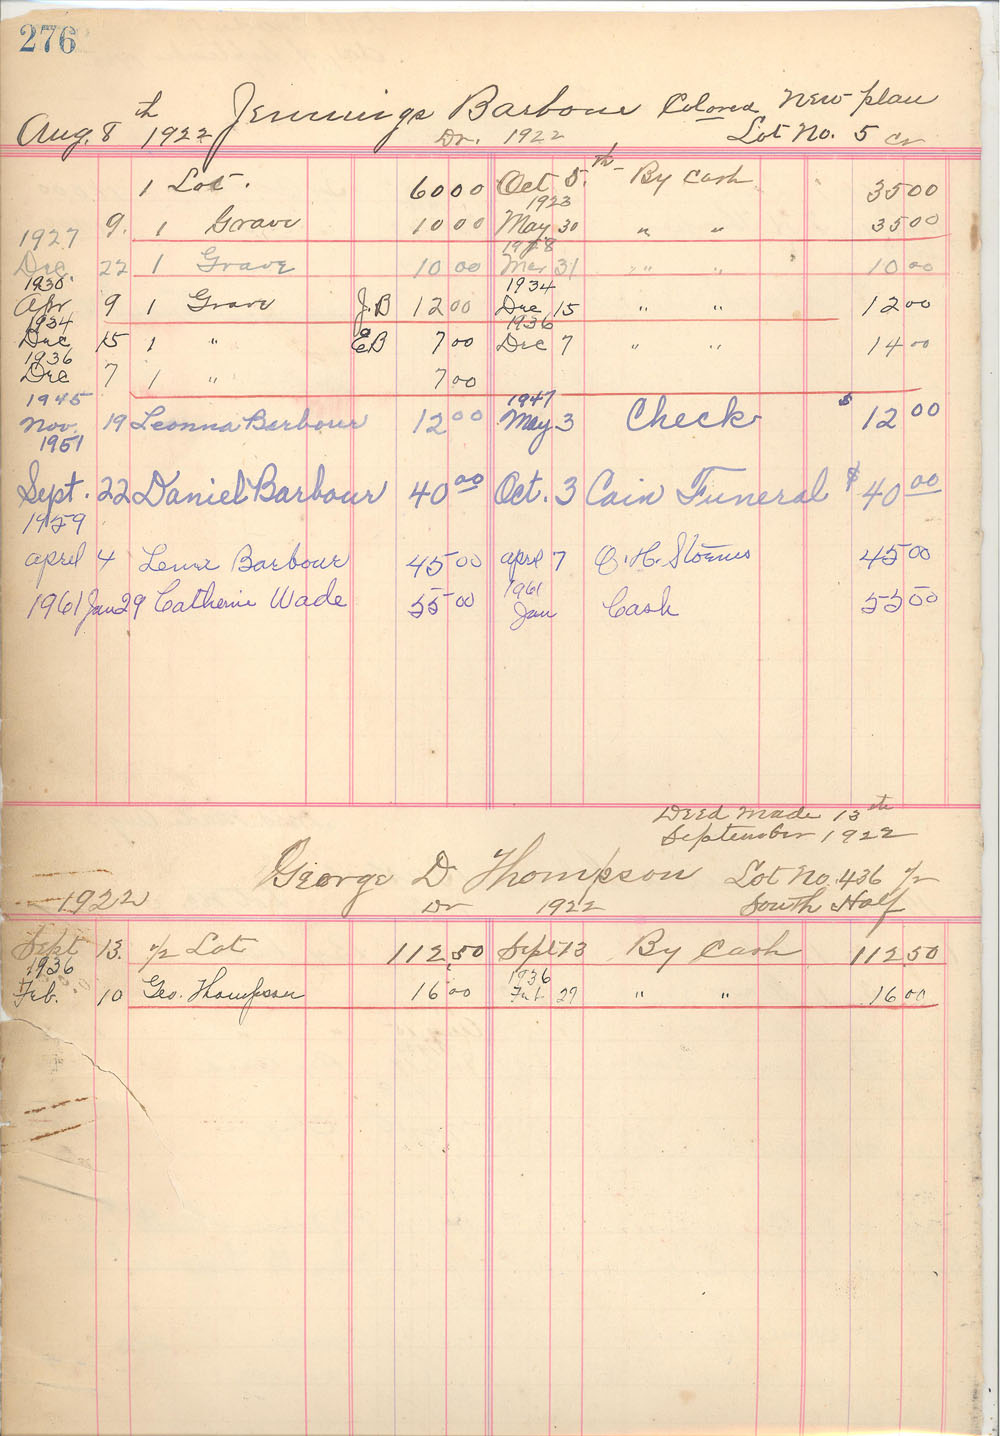 276
Aug. 8th 1922 Jennings Barbour Colored New plan
Dr. 1922 Lot No. 5 Cr
1 Lot. 60 00 Oct 5th By Cash 35 00
1923
9. 1 Grave 10 00 May 30 " " 35 00
1927 1928
Dec. 22 1 Grave 10 00 Mar 31 " " 10 00
1930 1934
Apr 9 1 Grave J.B 12 00 Dec 15 " " 12 00
1934 1936
Dec 15 1 " E.B 7 00 Dec 7 " " 14 00
1936
Dec 7 1 " 7 00
1945 1947
Nov. 19 Leonna Barbour 12 00 May 3 Check $ 12 00
1951
Sept. 22 Daniel Barbour 40 00 Oct. 3 Cain Funeral $ 40 00
1959
april 4 Barbour 45 00 aprl 7 O. H. 45 00
1961
1961 Jan 29 Catherine Wade 55 00 Jan Cash 55 00
Deed made 13th
September 1922
George D Thompson Lot No. 436 1/2
1922 Dr 1922 South Half
Sept 13. 1/2 Lot 112.50 Sept 13 By Cash 112.50
1936 1936
Feb. 10 Geo. Thompson 16 00 Feb 29 " " 16 00